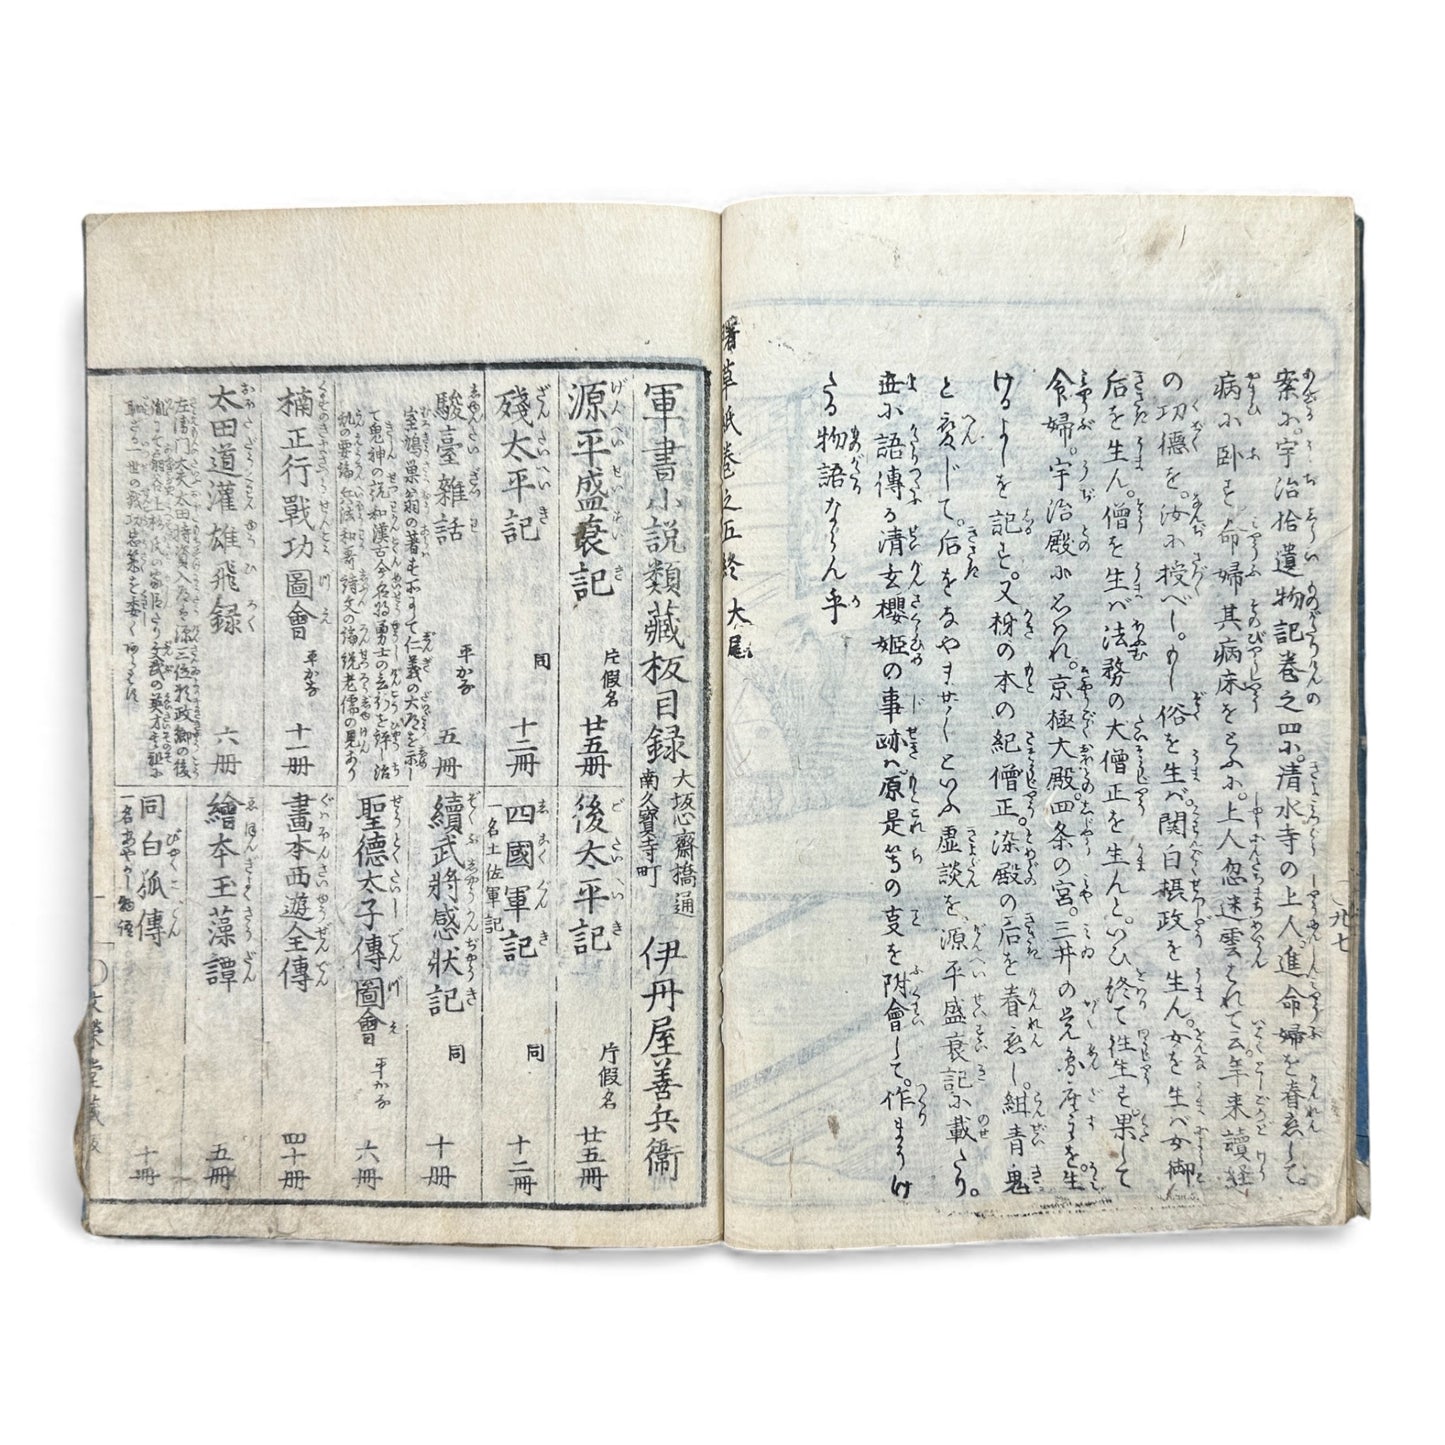 案ふに。宇治拾遺物記巻之四に。清水寺の上人進命婦を眷恋して。
病に卧す命婦其病床をとふに。上人忽迷雲はれて云。年来讀経
の功徳を。汝に授べし。もし俗を生バ。関白摂政を生ん。女を生バ女御
后を生ん。僧を生バ法務の大僧正を生んと。いひ終て往生す。果して
命婦。宇治殿に思われ。京極大殿。四条の宮。三井の覚円座主を生
けるよしを記す。又柹の本の紀僧正。染殿の后を眷恋し。紺青鬼
と変じて。后をなやませしといふ虚談を。源平盛衰記に載たり。
世に語傳る清玄櫻姫の事跡ハ。原是等の㕝を附會して。作まうけ
たる物語ならん乎
草紙巻之五終 大尾
九七
軍書小説類藏板目録 大坂心齋橋通 南久寶寺町 伊丹屋善兵衞
源平盛衰記 片假名 廿五冊
殘太平記 同 十二冊
駿臺雜話 平かな 五冊
室鳩巣翁の著す所にして仁義の大道を示し
て鬼神の説和漢古今名将勇士の言行を評し治
乱の要論兵法和哥詩文の論説老儒の見あり
楠正行戰功圖會 平かな 十一冊
太田道灌雄飛録 六冊
後太平記 片假名 廿五冊
四國軍記 同 十二冊
一名土佐軍記
續武將感状記 同 十冊
聖德太子傳圖會 平かな 六冊
畫本西遊全傳 四十冊
繪本玉藻譚 五冊
同白狐傳 十冊
一名あやかし物語
文榮堂藏板